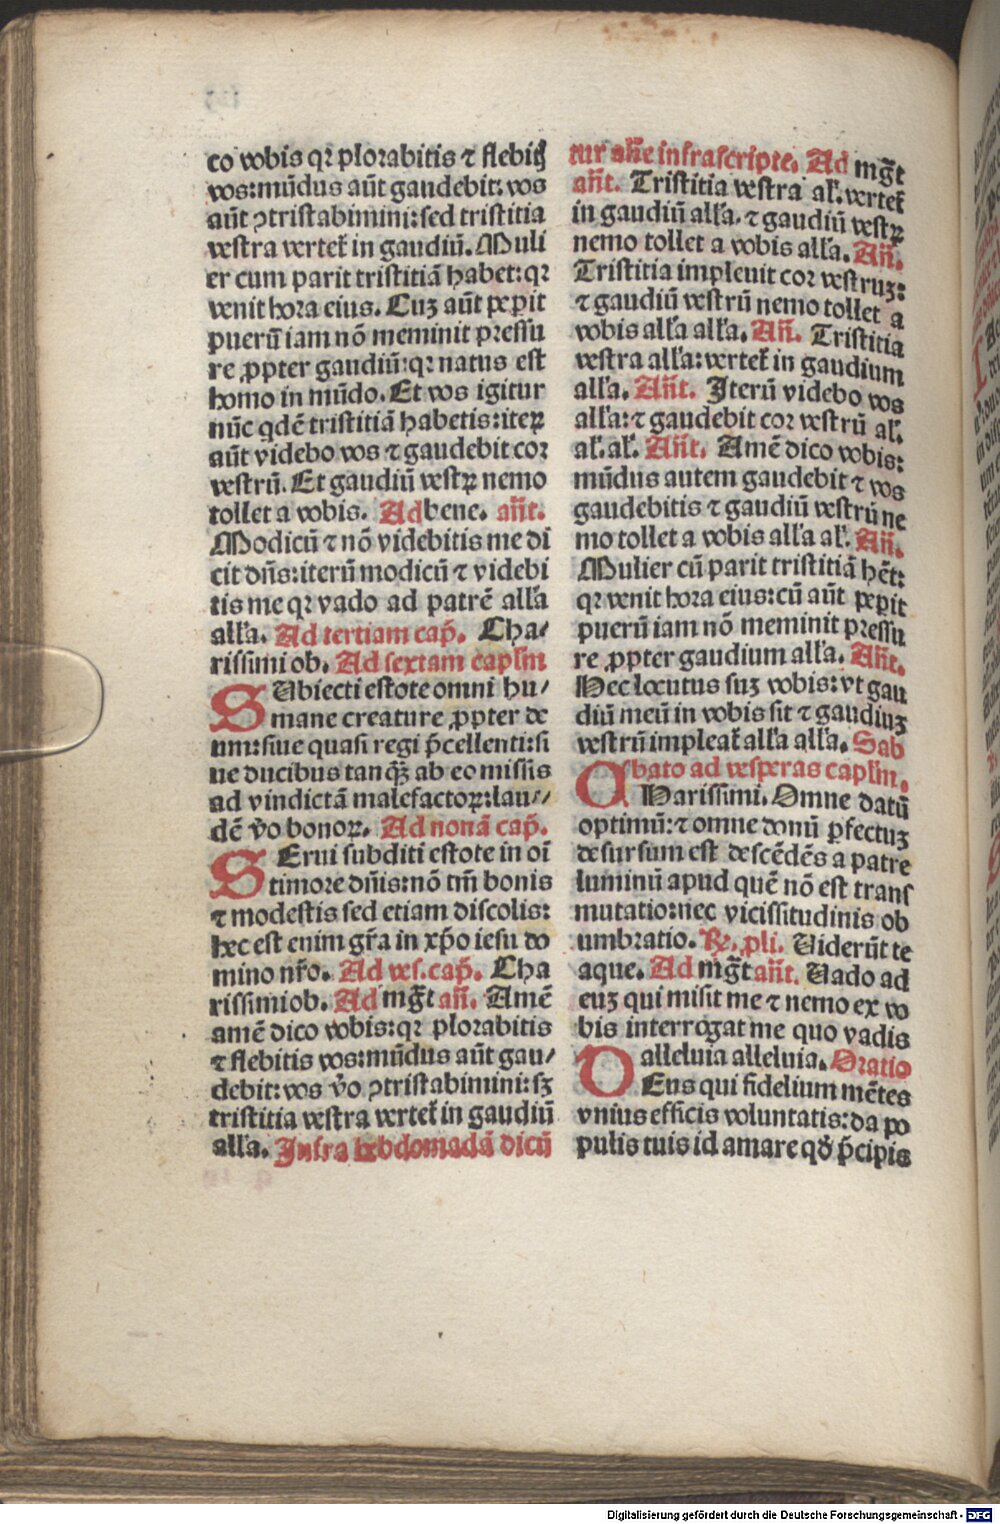 co vobis qꝛ ploꝛabitis ⁊ flebitꝭ
vos:mūdus aūt gaudebit: vos
aūt ↄtristabimini:sed tristitia
vestra verteť in gaudiū. Muli
er cum parit tristitiā habet: qꝛ
venit hoꝛa eius. Cuꝫ aūt peꝑit
puerū iam nō meminit pꝛessu
re ꝓpter gaudiū: qꝛ natus est
homo in mūdo. Et vos igitur
nūc qdē tristitiā habetis: iteꝝ
aūt videbo vos ⁊ gaudebit coꝛ
vestrū. Et gaudiū vestꝝ nemo
tollet a vobis. Ad bene. añt.
Modicū ⁊ nō videbitis me di
cit dñs: iterū modicū ⁊ videbi
tis me qꝛ vado ad patrē alľa
alľa. Ad tertiam cap̄. Cha⸗
rissimi ob. Ad sextam capľm
SUbiecti estote omni hu⸗
mane creature ꝓpter de
um: siue quasi regi p̄cellenti: si
ue ducibus tanqꝫ̄ ab eo missis
ad vindictā malefactoꝝ: lau⸗
dē v̄o bonoꝝ. Ad nonā cap̄.
SErui subditi estote in oī
timoꝛe dñis: nō tm̄ bonis
⁊ modestis sed etiam discolis:
hec est enim gr̄a in xp̄o iesu do
mino nr̄o. Ad ves. cap̄. Cha
rissimi ob. Ad mg̃t añ. Amē
amē dico vobis: qꝛ ploꝛabitis
⁊ flebitis vos: mūdus aūt gau⸗
debit: vos v̄o ↄtristabimini: sꝫ
tristitia vestra verteť in gaudiū
alľa. Infra hebdomadā dicū
tur añe infrascripte. Ad mg̃t
añt. Tristitia vestra aľ. verteť
in gaudiū alľa. ⁊ gaudiū vestꝝ
nemo tollet a vobis alľa. Añ.
Tristitia impleuit coꝛ vestruꝫ:
⁊ gaudiū vestrū nemo tollet a
vobis alľa alľa. Añ. Tristitia
vestra alľa: verteť in gaudium
alľa. Añt. Iterū videbo vos
alľa: ⁊ gaudebit coꝛ vestrū aľ.
aľ. aľ. Añt. Amē dico vobis:
mūdus autem gaudebit ⁊ vos
gaudebitis ⁊ gaudiū vestrū ne
mo tollet a vobis alľa aľ. Añ.
Mulier cū parit tristitiā hēt:
qꝛ venit hoꝛa eius: cū aūt peꝑit
puerū iam nō meminit pꝛessu
re ꝓpter gaudium alľa. Añt.
Hec locutus suꝫ vobis: vt gau
diū meū in vobis sit ⁊ gaudiuꝫ
vestrū impleať alľa alľa. Sab
bato ad vesperas capľm.
CHarissimi. Omne datū
optimū: ⁊ omne donū ꝑfectuꝫ
desursum est descēdēs a patre
luminū apud quē nō est trans
mutatio: nec vicissitudinis ob
umbꝛatio. ℞. ꝓli. Uiderūt te
aque. Ad mg̃t añt. Uado ad
euꝫ qui misit me ⁊ nemo ex vo
bis interrogat me quo vadis
alleluia alleluia. Oratio
DEus qui fidelium mētes
vnius efficis voluntatis: da po
pulis tuis id amare qđ p̄cipis
Digitalisierung gefördert durch die Deutsche Forschungsgemeinschaft - DFG